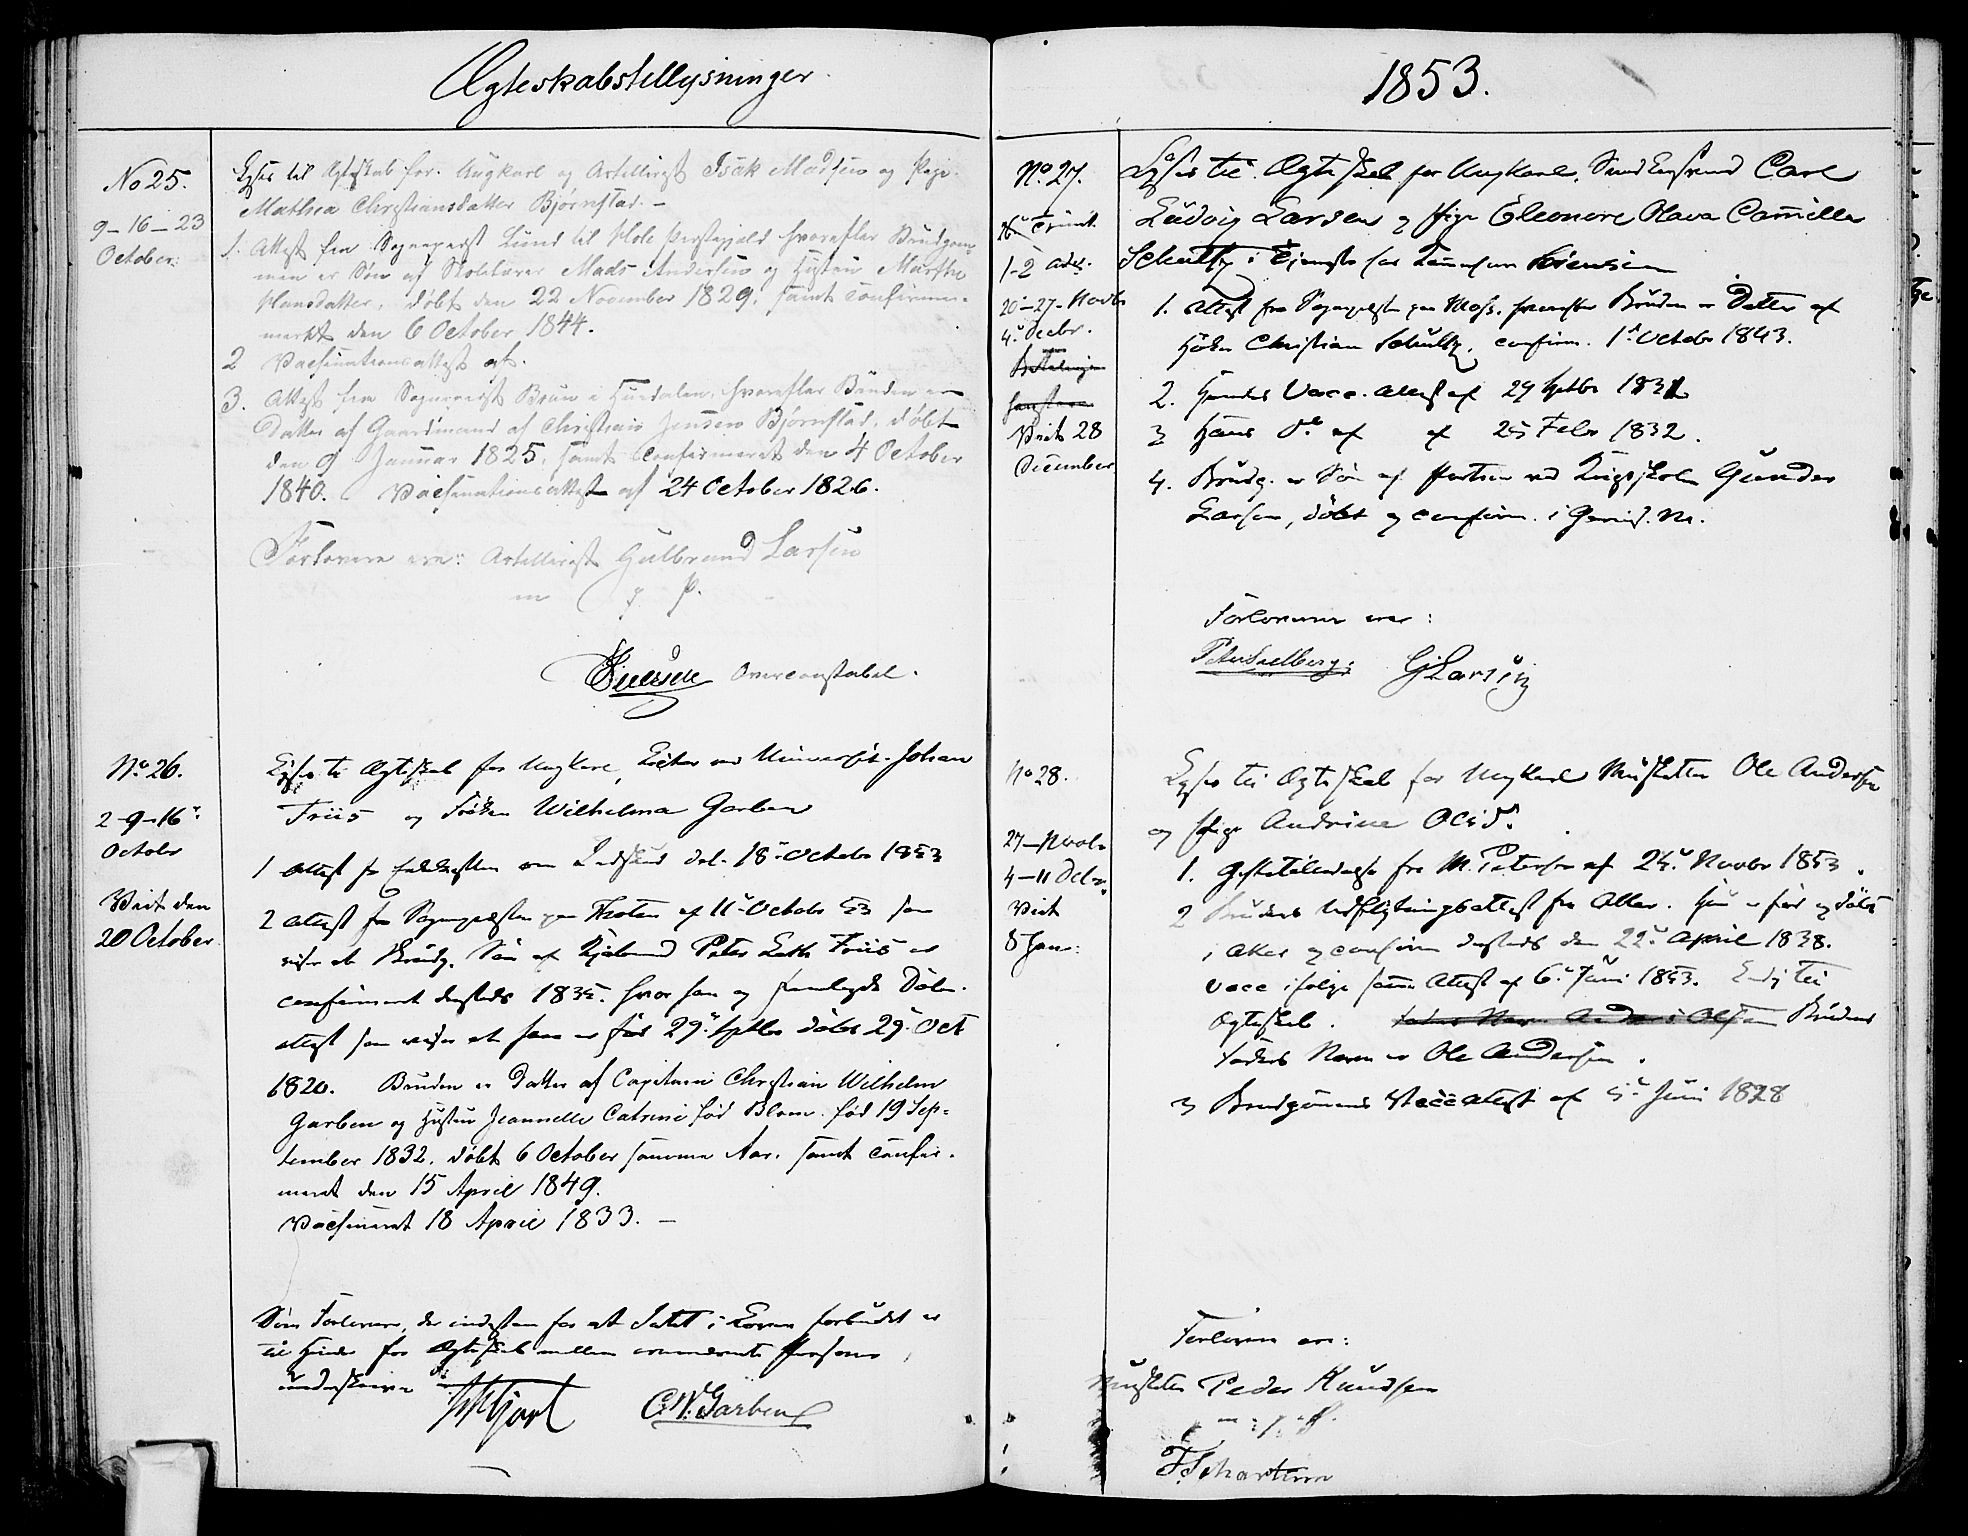 Ægteskabstillysninger.
No 25.
9-16-23
October.
Lyses til Ægteskab for Ungkarl og Artillerist Isak Madsen og Pige
Mathea Christiansdatter Bjørnstad.-
1. Attest fra Sogneprest Lund til Hole Prestegjeld hvorefter Brudgom-
men er Søn af Skolelærer Mads Andersen og Hustru Marthe
Hansdatter, døbt den 22 November 1829, samt confirme-
meret den 6 October 1844.
2 Vaccinationsattest af.
3. Attest fra Sogneprest Brun i Hurdalen, hvorefter Bruden er
Datter af Gaardmand Christian Jensen Bjørnstad, døbt
den 9 Januar 1825, samt confirmeret den 4 October
1840. Vaccinationsattest af 24 October 1826.
Forlovere ere: Artillerist Gulbrand Larsen
m f P.
Overconstabel.
No 26.
2-9-16
October
Viet den
20 October
Lyses til Ægteskab for Ungkarl, Johan
Friis og Frøken Wilhelma Garben
1 Attest fra 18 October 1853
2 Attest fra Sognepresten paa Thoten af 11 October 53 som
viser at Brudg. Søn af Peter Friis er
confirmeret dersteds 1835. hvor han og Døbe-
attest som viser at han er født 29 Septbr døbt 29 Oct
1820. Bruden er Datter af Capitain Christian Wilhelm
Garben og Hustru Jeannette Catrine født Blom. født 19 Sep-
tember 1832. døbt 6 October samme Aar. samt confir-
meret den 15 April 1849.
Vaccineret 18 April 1833. -
Som Forlovere, der indestaa for at Intet i Loven forbudet er
til Hinder for Ægteskab mellem ovennævnte Personer,
underskrive
Hjort C.W. Garben
1853.
No 27.
26 Trinit
1-2 Adv.
20-27-Novbr
4 Decbr.
Viet 28
December
Lyses til Ægteskab for Ungkarl, Carl
Ludvig Larsen og Pige Eleonore Olava Camilla
Schultz i Tjeneste for Sørensen
1. Attest fra Sognepresten paa Moss, hvorefter Bruden er Datter af
Christian Schultz, confirm. 1 Octobr 1843.
2. Hendes Vacc. Attest af 29 Septbr 1831
3 Hans Do af af 25 Febr 1832.
4. Brudg. er Søn af Portner ved Krigsskolen Gunder
Larsen, døbt og confirm. i Garnis. M.
Forlovere ere:
Peter Sælberg. G Larsen
No 28.
27-Novbr
4-11 Decbr.
Viet
8 Jan:
Lyses til Ægteskab for Ungkarl Musketer Ole Andersen
og Pige Andrine Olsd.
1. Giftetilladelse fra M. Petersen af 24 Novbr 1853.
2 Brudens Udflytningsattest fra Aker. Hun er født og døbt
i Aker og confirm dersteds den 22 April 1838.
Vacc ifølge samme Attest af 6 Juni 1853. Ledig til
Ægteskab. Brudens
Faders Navn er Ole Andersen.
3 Brudgommens Vaccattest af 5 Juni 1828
Forlovere ere:
Musketer Peder Knudsen
m. f. P.
F. Schartum